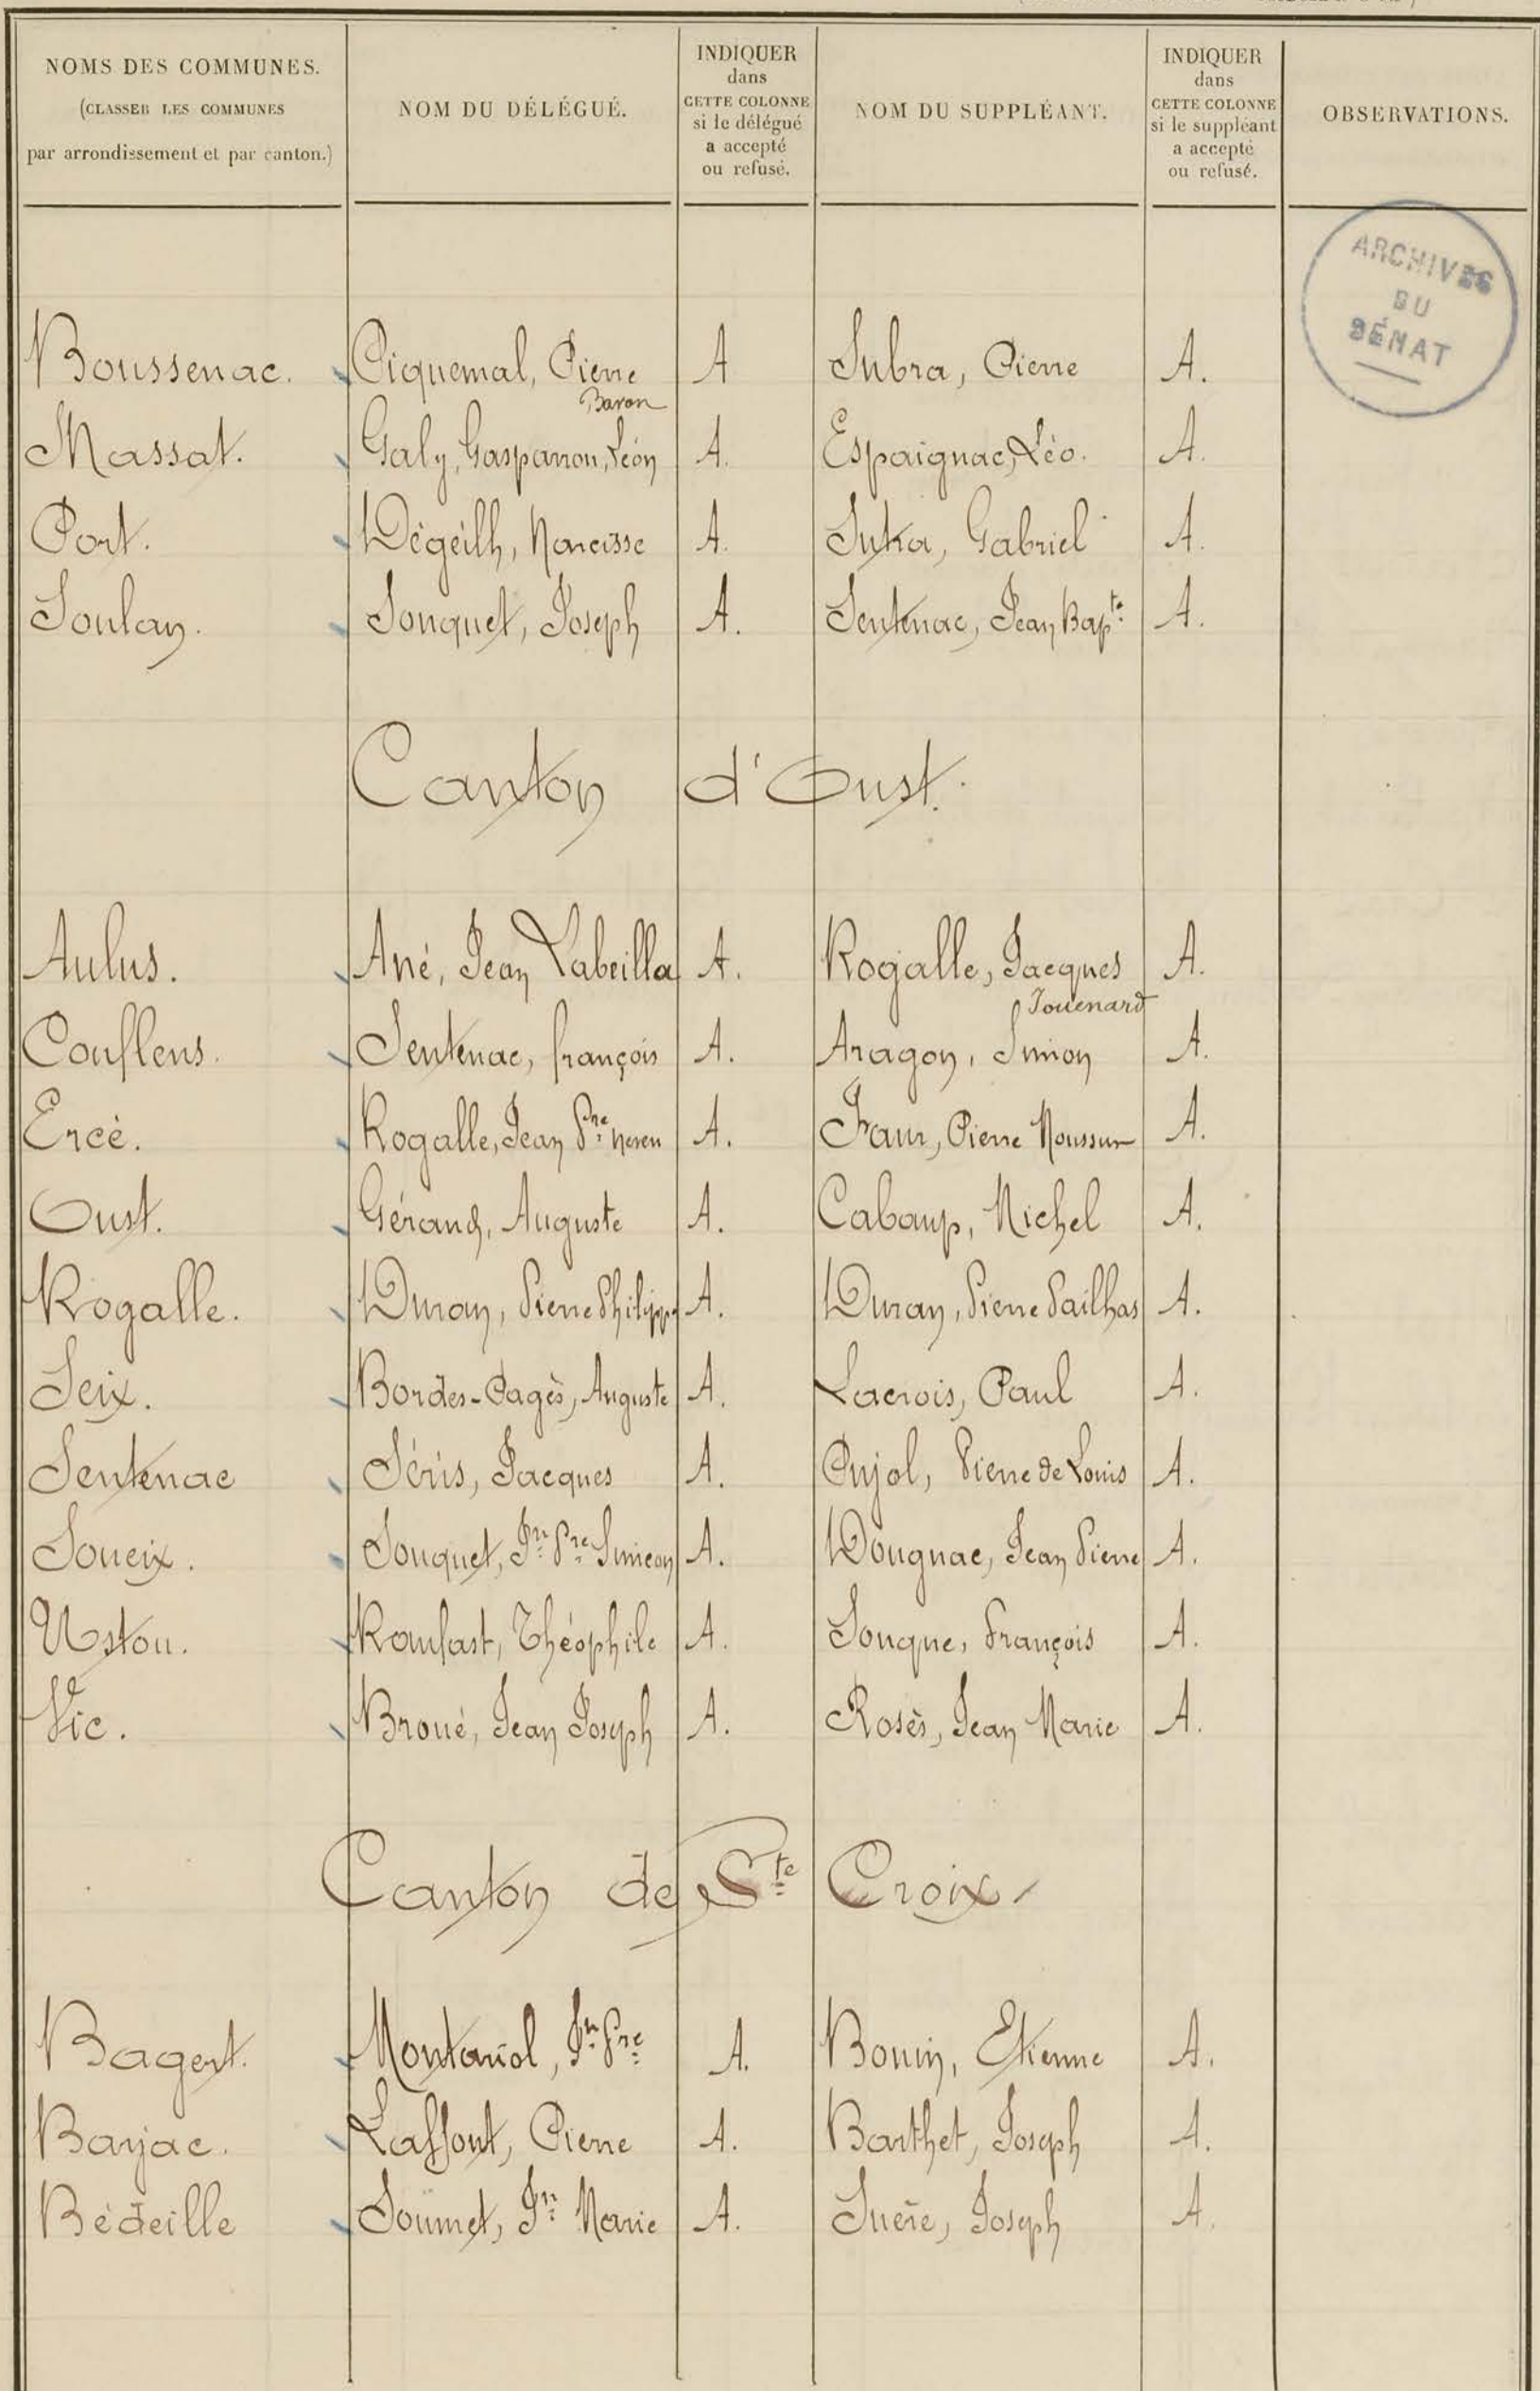 NOMS DES COMMUNES.
(CLASSER LES COMMUNES
par arrondissement et par canton.)
NOM DU DÉLÉGUÉ.
INDIQUER
dans
CETTE COLONNE
si le délégué
a accepté
ou refusé.
NOM DU SUPPLÉANT.
INDIQUER
dans
CETTE COLONNE
si le suppléant
a accepté
ou refusé.
OBSERVATIONS.
ARCHIVES
DU
SÉNAT
Boussenac. Piquemal, Pierre A Subra, Pierre A.
Baron
Massat. Galy, Gasparrou, Léon A. Espaignac, Léo. A.
Port. Dégeilh, Narcisse A. Gabriel A.
Soulan. Souquet, Joseph A. Sentenac, Jean Bapte A.
Canton d'Oust.
Aulus. Ané, Jean Labeilla A. Rogalle, Jacques A.
Jouenard
Couflens. Sentenac, françois A. Aragon, Simon A.
Ercé. Rogalle, Jean Pre Neren A. Faur, Pierre Moussur A.
Oust. Gérand, Auguste A. Cabaup, Michel A.
Rogalle. Duran, Pierre Philippe A. Duran, Pierre Pailhas A.
Seix. Bordes-Pagès, Auguste A. Lacrois, Paul A.
Sentenac Séris, Jacques A. Pujol, Pierre de Louis A.
Soueix. Souquet, Jn Pre Simeon A. Dougnac, Jean Pierre A.
Ustou. Raufast, Théophile A. Souque, François A.
Vic. Broué, Jean Joseph A. Rosès, Jean Marie A.
Canton de Ste Croix
Bagert. Montariol, Jn Pre A. Bouin, Etienne A.
Barjac. Laffont, Pierre A. Barthet, Joseph A.
Bédeille Soumet, Jn Marie A. Suère, Joseph A.